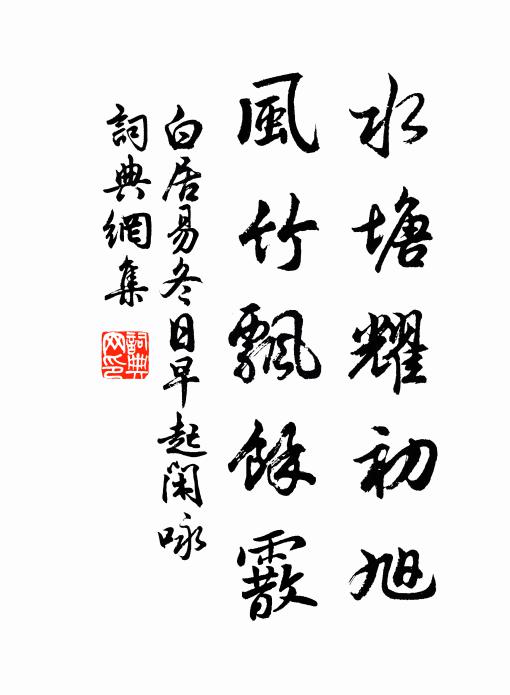 水塘耀初旭
風竹飄餘霰
白居易冬日早起閑咏
詞典網集
詞典網印